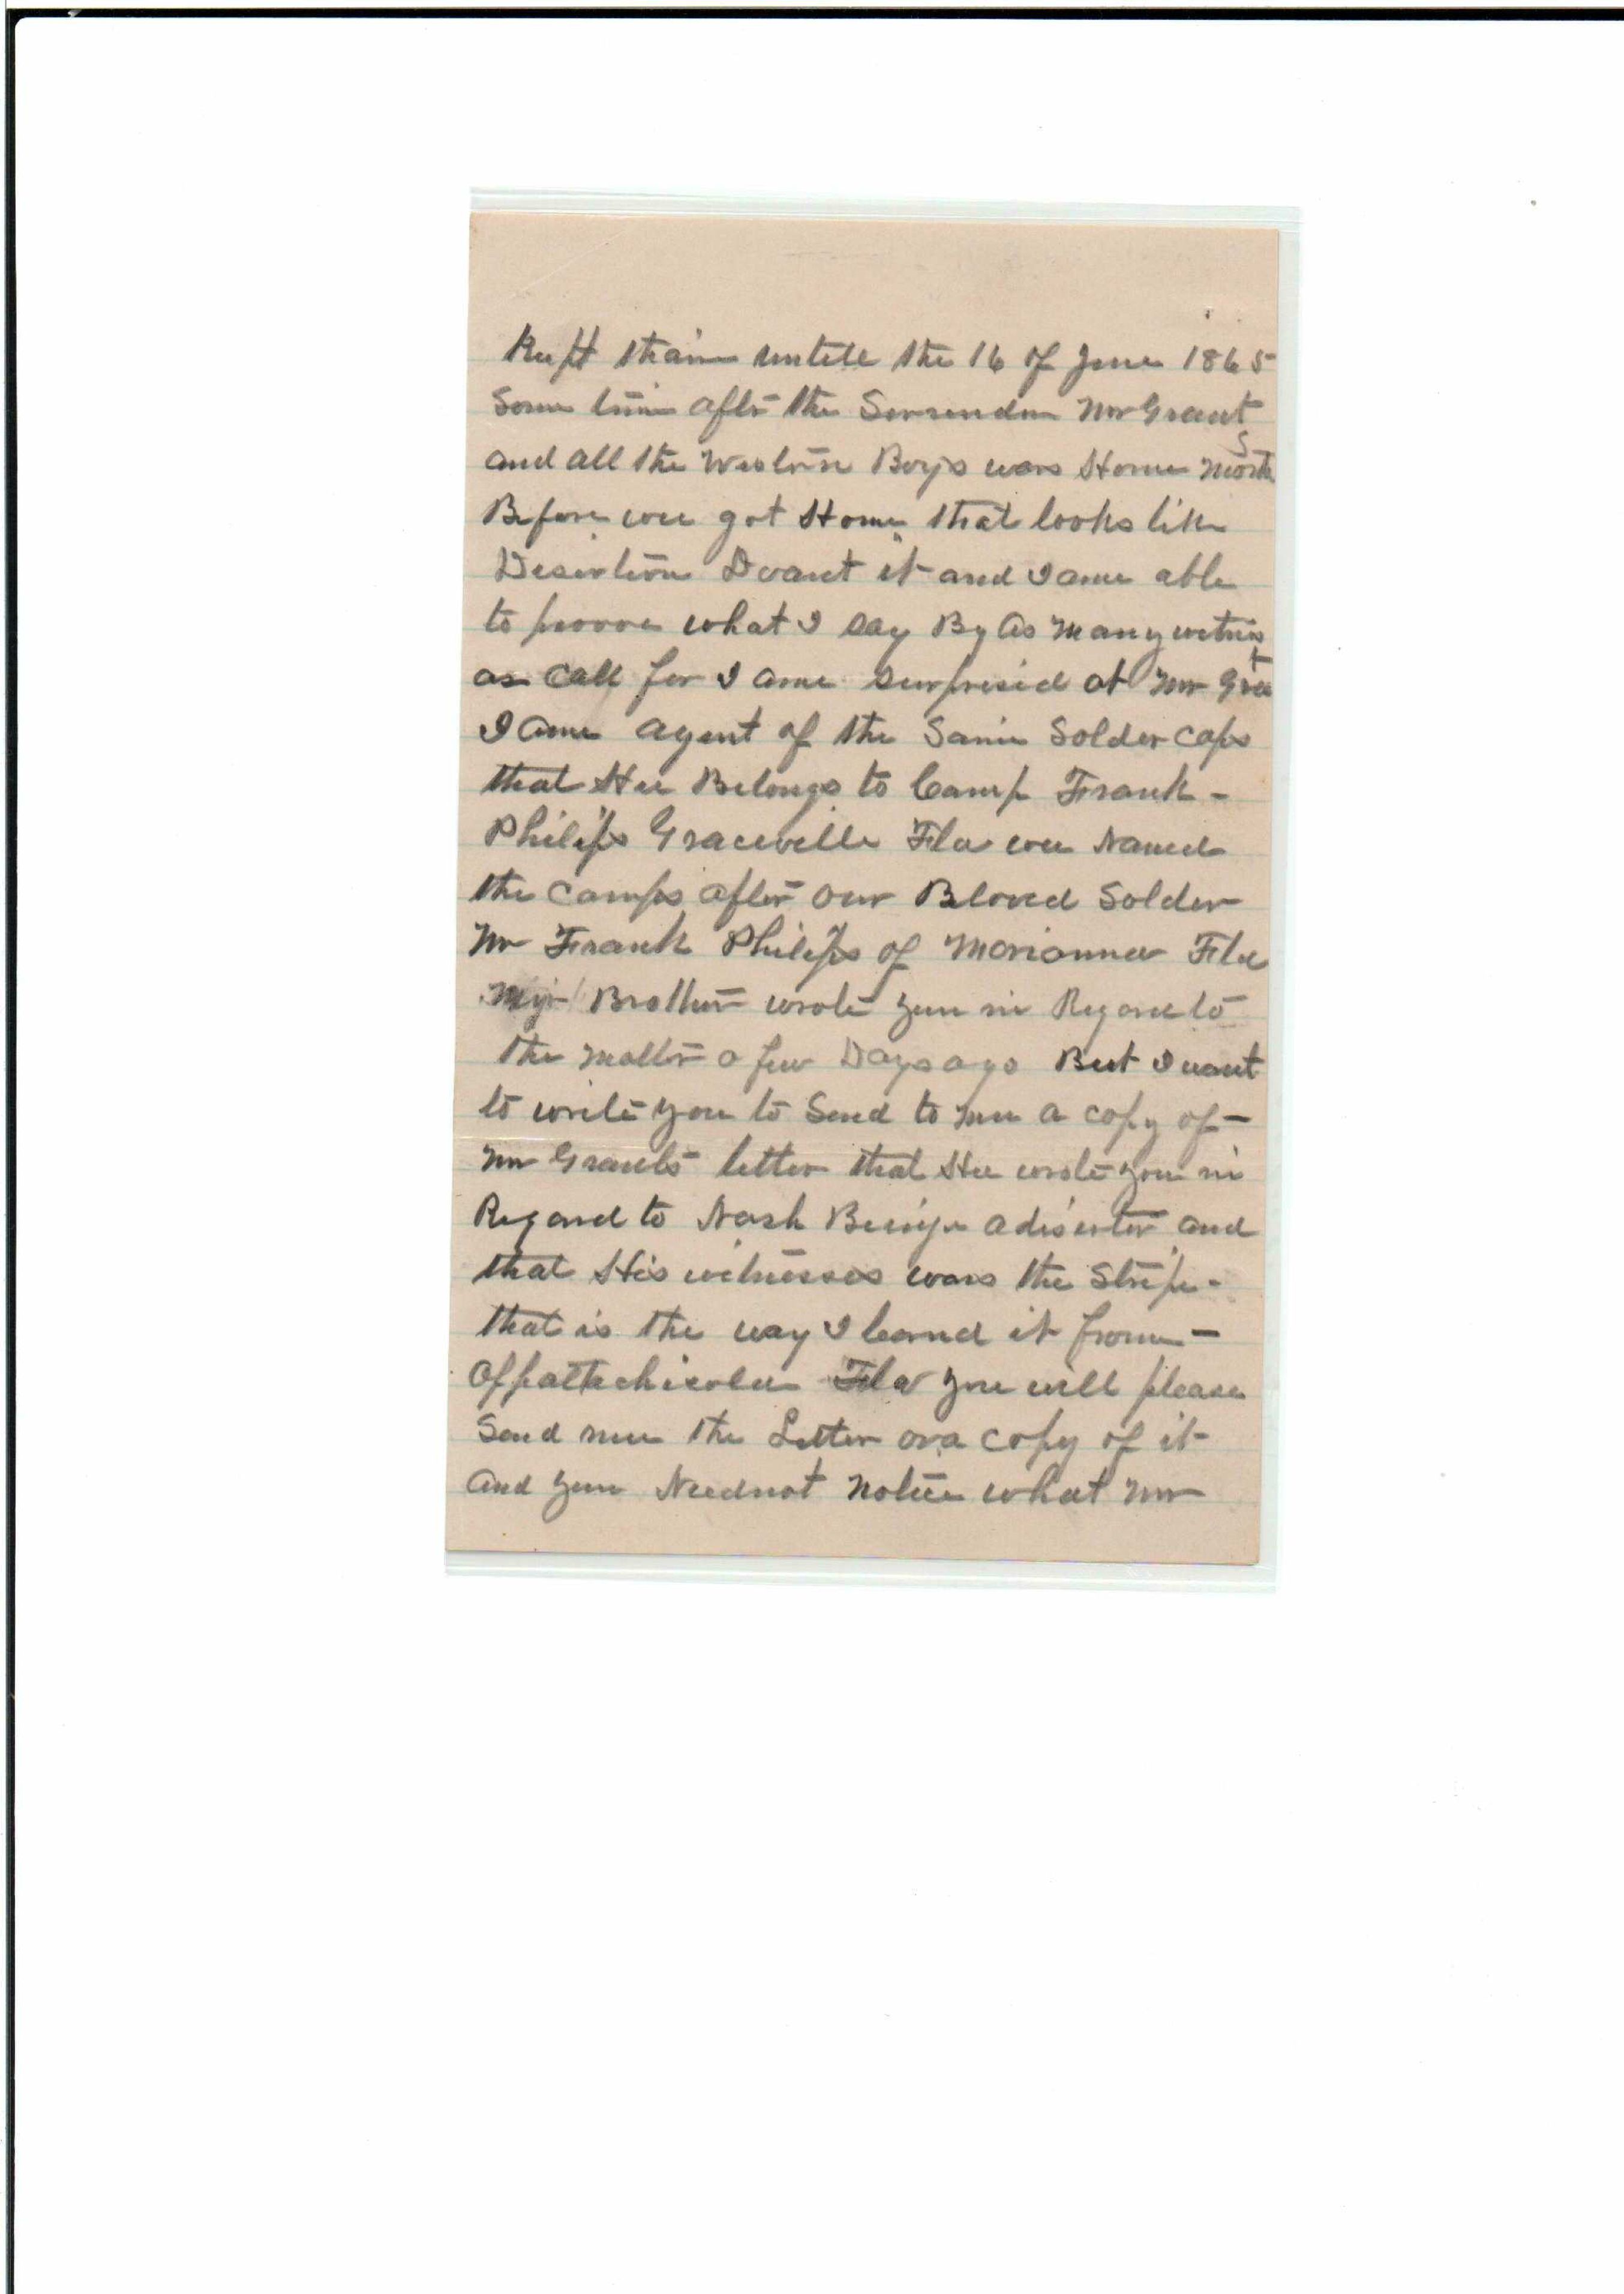 Kept thair untill the 16 of June 1865
Some time after the Surrender Mr Grant
and all the Western Boys was Home months
Before wee got Home that looks like
Desertion Doant it and I ame able
to proove what I say By As Many witnis
as Call for I ame surprised at Mr Grant
I ame agent of the Same Solder Caps
that Hee Belongs to Camp Frank -
Philips Graceville Fla wee Named
the Camps after our Beloved Solder
Mr Frank Philips of Marianna Fla
My Brother wrote you in Regard to
the matter a few Days ago But I want
to write you to Send to mee a copy of -
Mr Grants letter that Hee wrote you in
Regard to Nash Beinge a diserter and
that His witnesses was the Stripe -
that is the way I learnd it frome -
Appaltachicola Fla you will please
Send mee the Letter or a copy of it
and you Neednot notice what Mr